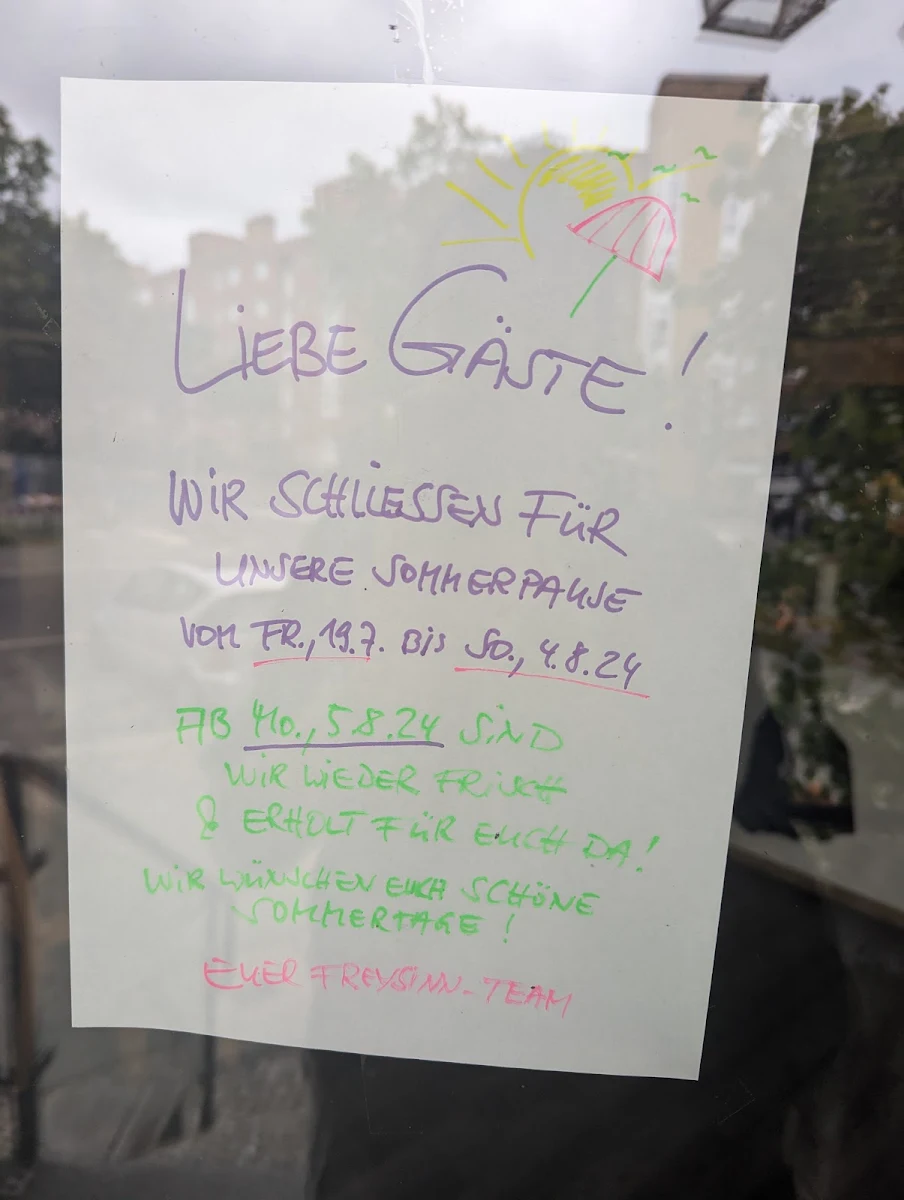 LIEBE GÄSTE!
WIR SCHLIESSEN FÜR
UNSERE SOMMERPAUSE
VOM FR., 19.7. BIS SO., 4.8.24
AB MO., 5.8.24 SIND
WIR WIEDER FRISCH
& ERHOLT FÜR EUCH DA!
WIR WÜNSCHEN EUCH SCHÖNE
SOMMERTAGE!
EUER FREYSINN-TEAM